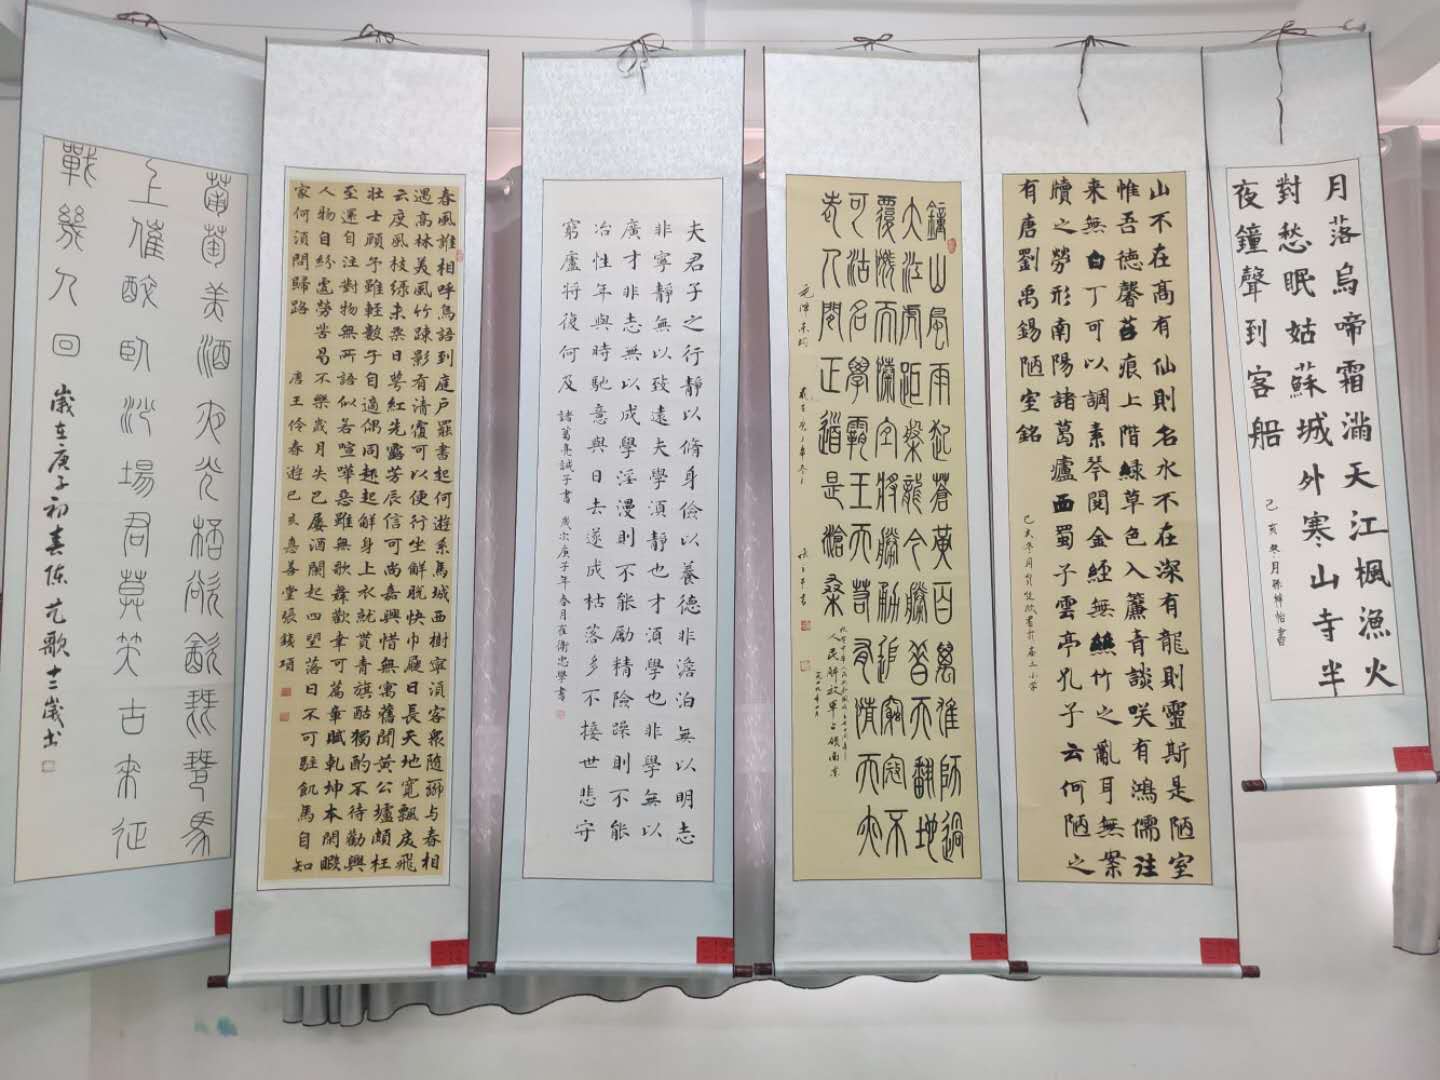 月落烏啼霜滿天江楓漁火
對愁眠姑蘇城外寒山寺半
夜鐘聲到客船
己亥冬月孫梓怡書
山不在高有仙則名水不在深有龍則靈斯是陋室
惟吾德馨苔痕上階緑草色入簾青談咲有鴻儒往
来無白丁可以調素琴閲金經無絲竹之亂耳無案
牘之勞形南陽諸葛廬西蜀子雲亭孔子云何陋之
有唐劉禹錫陋室銘
鐘山風雨起蒼黄百萬雄師過
大江虎踞龍盤今勝昔天翻地
覆慨而慷宜將勝勇追窮寇不
可沽名學霸王天若有情天亦
老人間正道是滄桑
人民解放軍占領南京
夫君子之行靜以脩身儉以養德非澹泊無以明志
非寧靜無以致遠夫學須靜也才須學也非學無以
廣才非志無以成學淫漫則不能勵精險躁則不能
冶性年與時馳意與日去遂成枯落多不接世悲守
窮廬將復何及 諸葛亮誡子書 歲次庚子年春月崔衛忠學書
春風誰相呼鳥語到庭户罷書起何遊系馬城西樹寧須客衆随聊与春相
遇高林美風竹踈影有清癯可以便行坐鮮脱快巾屨日長天地寛飄戾飛
云度風枝緑未柔日萼紅先露芳辰信可尚嘉興惜無寓舊聞黄公壚頗枉
壮士顧予雖輕數子自適偶同趣起解身上衣就貰青旗酤獨酌不待勸興
至還自注對物無所語似若喧嘩惡雖無歌舞歡幸可篇章賦乾坤本閑暇
人物自紛遽勞苦曷不樂歲月失已屢酒闌起四望落日不可駐飢馬自知
家何須問歸路 唐王伶春遊己亥惠善堂張錢項
葡萄美酒夜光桮欲飲琵琶馬
上催醉卧沙場君莫笑古来征
戰幾人回 歲在庚子初春陳芃歌十三歲书